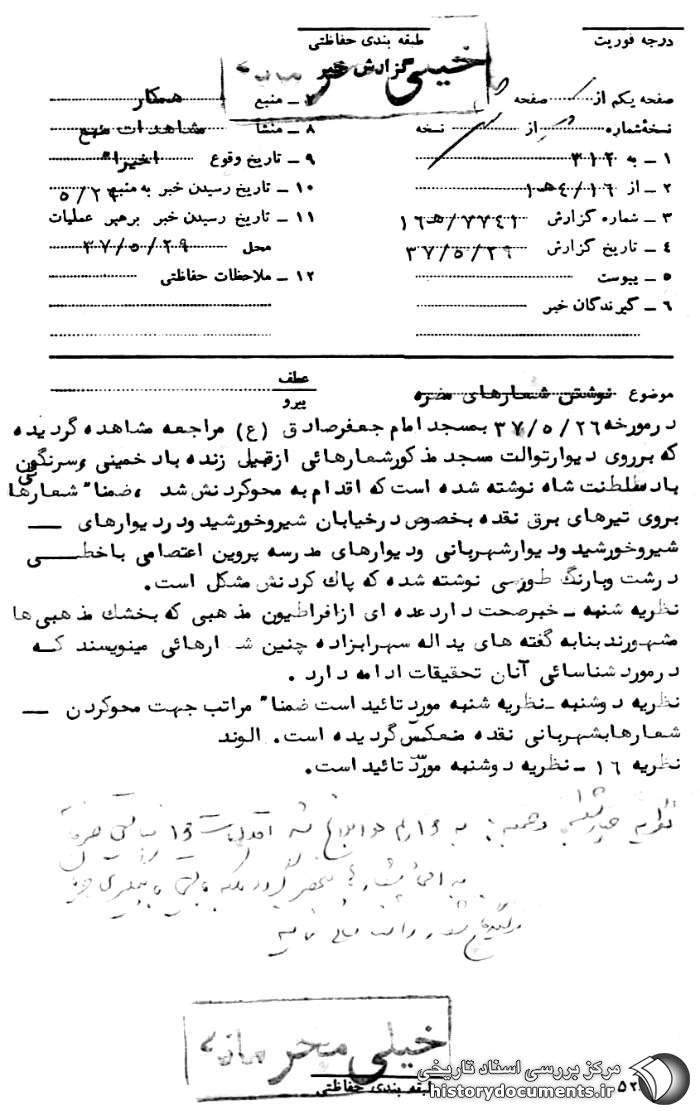 درجه فوریت
طبقه بندی حفاظتی
گزارش خبر
خیلی محرمانه
صفحه یکم از صفحه
نسخه شماره از نسخه
۱ ـ به ۳۱۲
۲ ـ از ۱۶/ﻫ۱
۳ ـ شماره گزارش ۷۷۴۱/ﻫ۱۶
۴ ـ تاریخ گزارش ۳۷/۵/۲۹
۵ ـ پیوست
۶ ـ گیرندگان خبر
۷ ـ منبع همکار
۸ ـ منشأ مشاهدات منبع
۹ ـ تاریخ وقوع اخیرا"
۱۰ ـ تاریخ رسیدن خبر به منبع
۱۱ ـ تاریخ رسیدن خبر برهبر عملیات
محل ۳۷/۵/۲۹
۱۲ ـ ملاحظات حفاظتی
موضوع نوشتن شعارهای مضره
عطف
پیرو
درمورخه ۳۷/۵/۲۶ بمسجد امام جعفرصادق (ع) مراجعه مشاهده گردیده
که برروی دیوارتوالت مسجد مذکورشعارهائی ازقبیل زنده باد خمینی وسرنگون
باد سلطنت شاه نوشته شده است که اقدام به محوکردنش شد ، ضمنا" شعارها
بروی تیرهای برق نقده بخصوص درخیابان شیروخورشید ودردیوارهای ـــ
شیروخورشید ودیوارشهربانی ودیوارهای مدرسه پروین اعتصامی باخطـــی
درشت وبارنگ طوسی نوشته شده که پاك کردنش مشکل است.
نظریه شنبه ـ خبرصحت دارد عده ای ازافراطیون مذهبی که بخشك مذهبی ها
مشهورند بنابه گفته های یداله سهرابزاده چنین ش ارهائی مینویسند کــه
درمورد شناسائی آنان تحقیقات ادامه دارد .
نظریه دوشنبه ـ نظریه شنبه مورد تائید است ضمنا" مراتب جهت محوکردن ـــ
شعارها بشهربانی نقده منعکس گردیده است. الوند
نظریه ۱۶ ـ نظریه دوشنبه مورد تائید است.
خیلی محرمانه
طبقه بندی حفاظتی
۵۲
مرکز بررسی اسناد تاریخی
historydocuments.ir